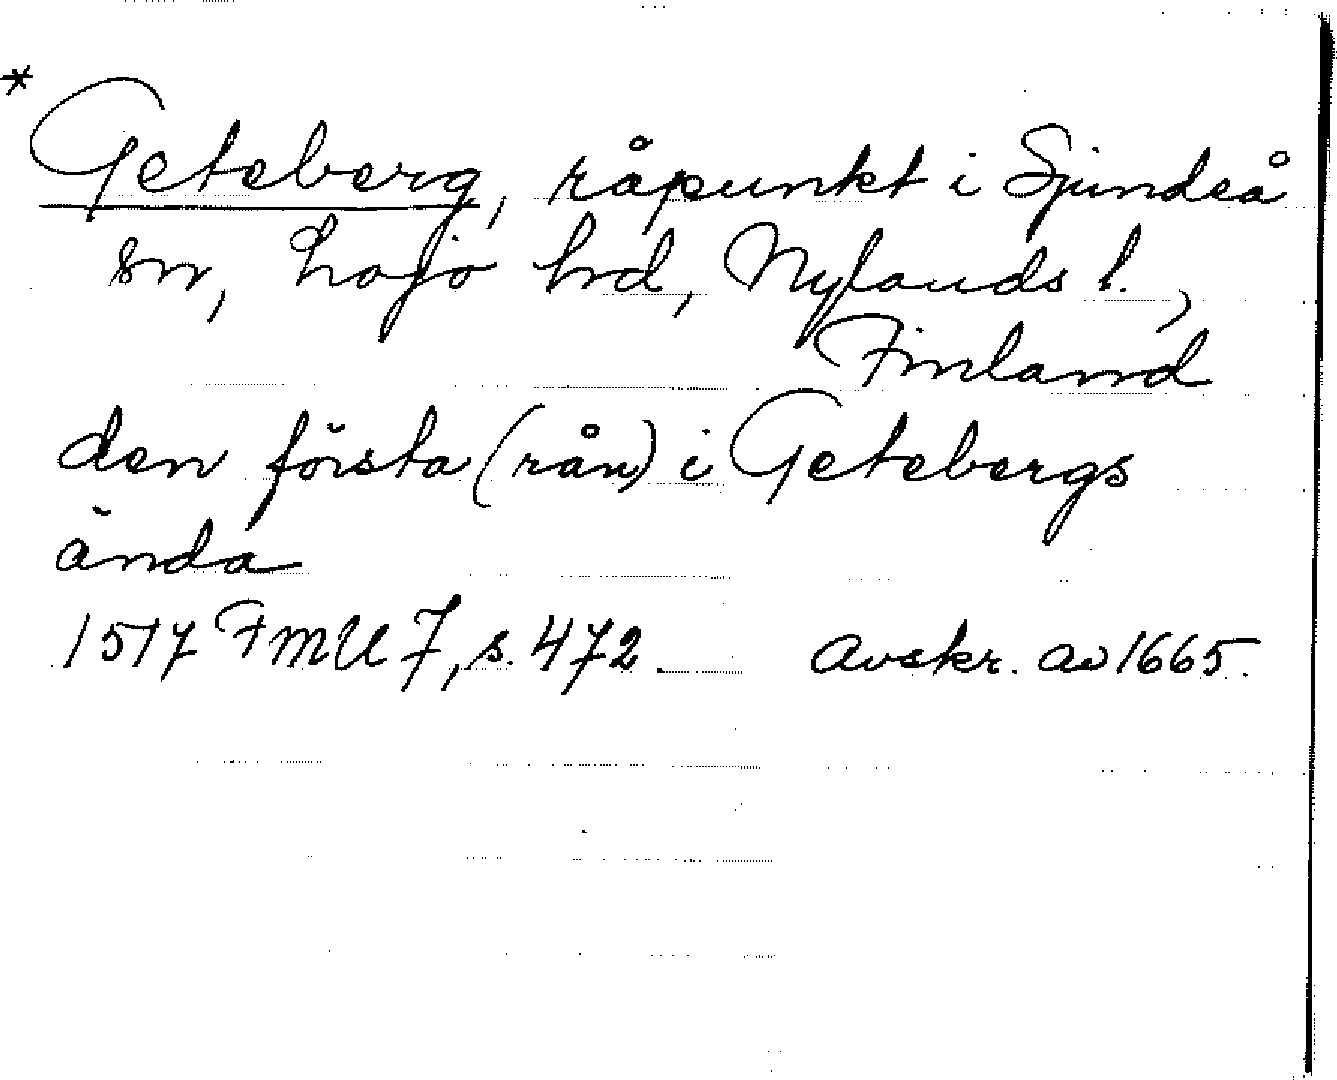 * Geteberg, råpunkt i Sjundeå
sn, Lojo hrd, Nylands l.,
Finland
den första (rån) i Getebergs
ända
1517 FMU 7, s. 472. Avskr. av 1665.